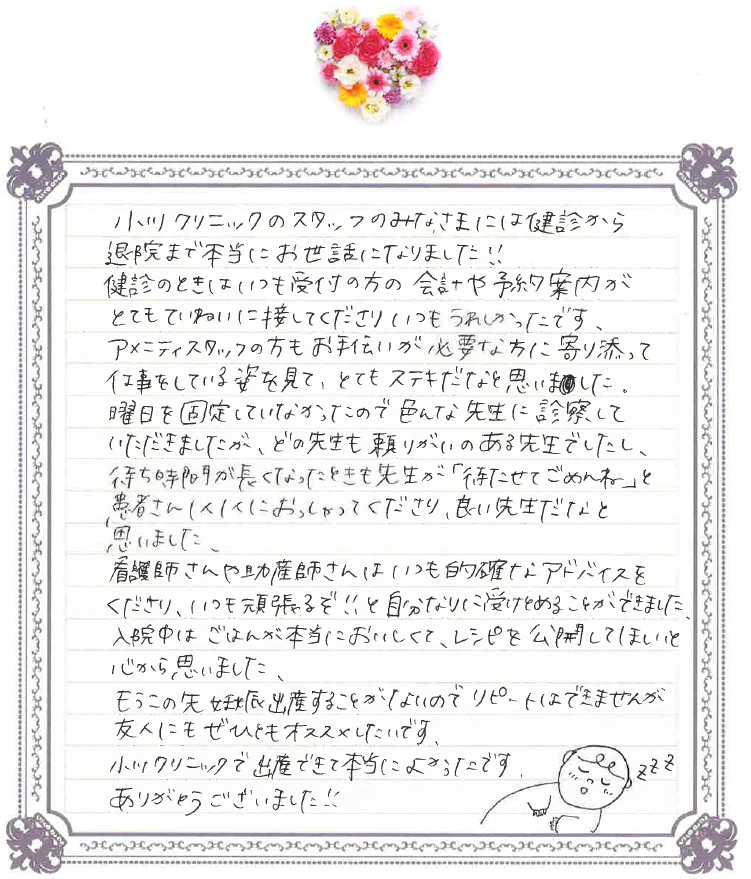 小川クリニックのスタッフのみなさまには健診から
退院まで本当にお世話になりました!!
健診のときはいつも受付の方の会計や予約案内が
とてもていねいに接してくださりいつもうれしかったです、
アメニティスタッフの方もお手伝いが必要な方に寄り添って
仕事をしている姿を見て、とてもステキだなと思いました。
曜日を固定していなかったので色んな先生に診察して
いただきましたが、どの先生も頼りがいのある先生でしたし、
待ち時間が長くなったときも先生が「待たせてごめんね」と
患者さん1人1人におっしゃってくださり、良い先生だなと
思いました、
看護師さんや助産師さんはいつも的確なアドバイスを
くださり、いつも頑張るぞ!!と自分なりに受けとめることができました、
入院中はごはんが本当においしくて、レシピを公開してほしいと
心から思いました、
もうこの先妊娠出産することがないのでリピートはできませんが
友人にもぜひともオススメしたいです、
小川クリニックで出産できて本当によかったです、
ありがとうございました!!
zzz